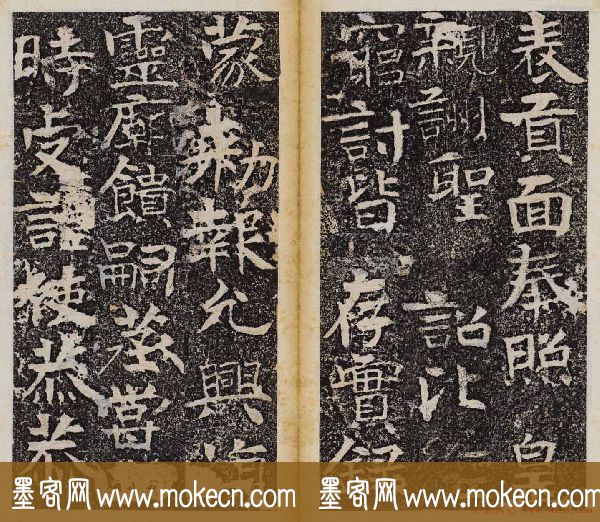 表貢面奉照皇
親訓聖詔比
窮討皆存實
蒙勅報允興
靈廟饋嗣蒸嘗
時虔謹恭恭
墨客网 www.mokecn.com
墨客网 www.mokecn.com